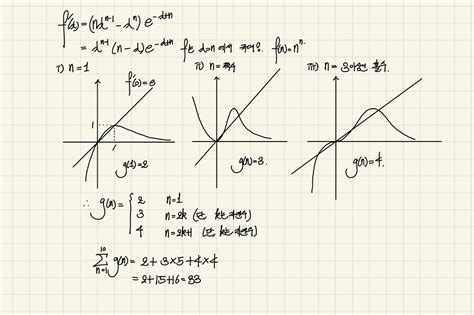 f'(x) = (nx^{n-1} - x^n) e^{-x+n}
= x^{n-1} (n-x) e^{-x+n} f는 x=n 에서 극대. f(n)=n^n.
i) n=1
ii) n=짝수
iii) n= 3이상 홀수.
f'(0)=e
1
1
g(1)=2
g(n)=3.
g(n)=4.
∴ g(n) = { 2 n=1
3 n=2k (단 k는 자연수)
4 n=2k+1 (단 k는 자연수)
\sum_{n=1}^{10} g(n) = 2+3×5+4×4
= 2+15+16=33